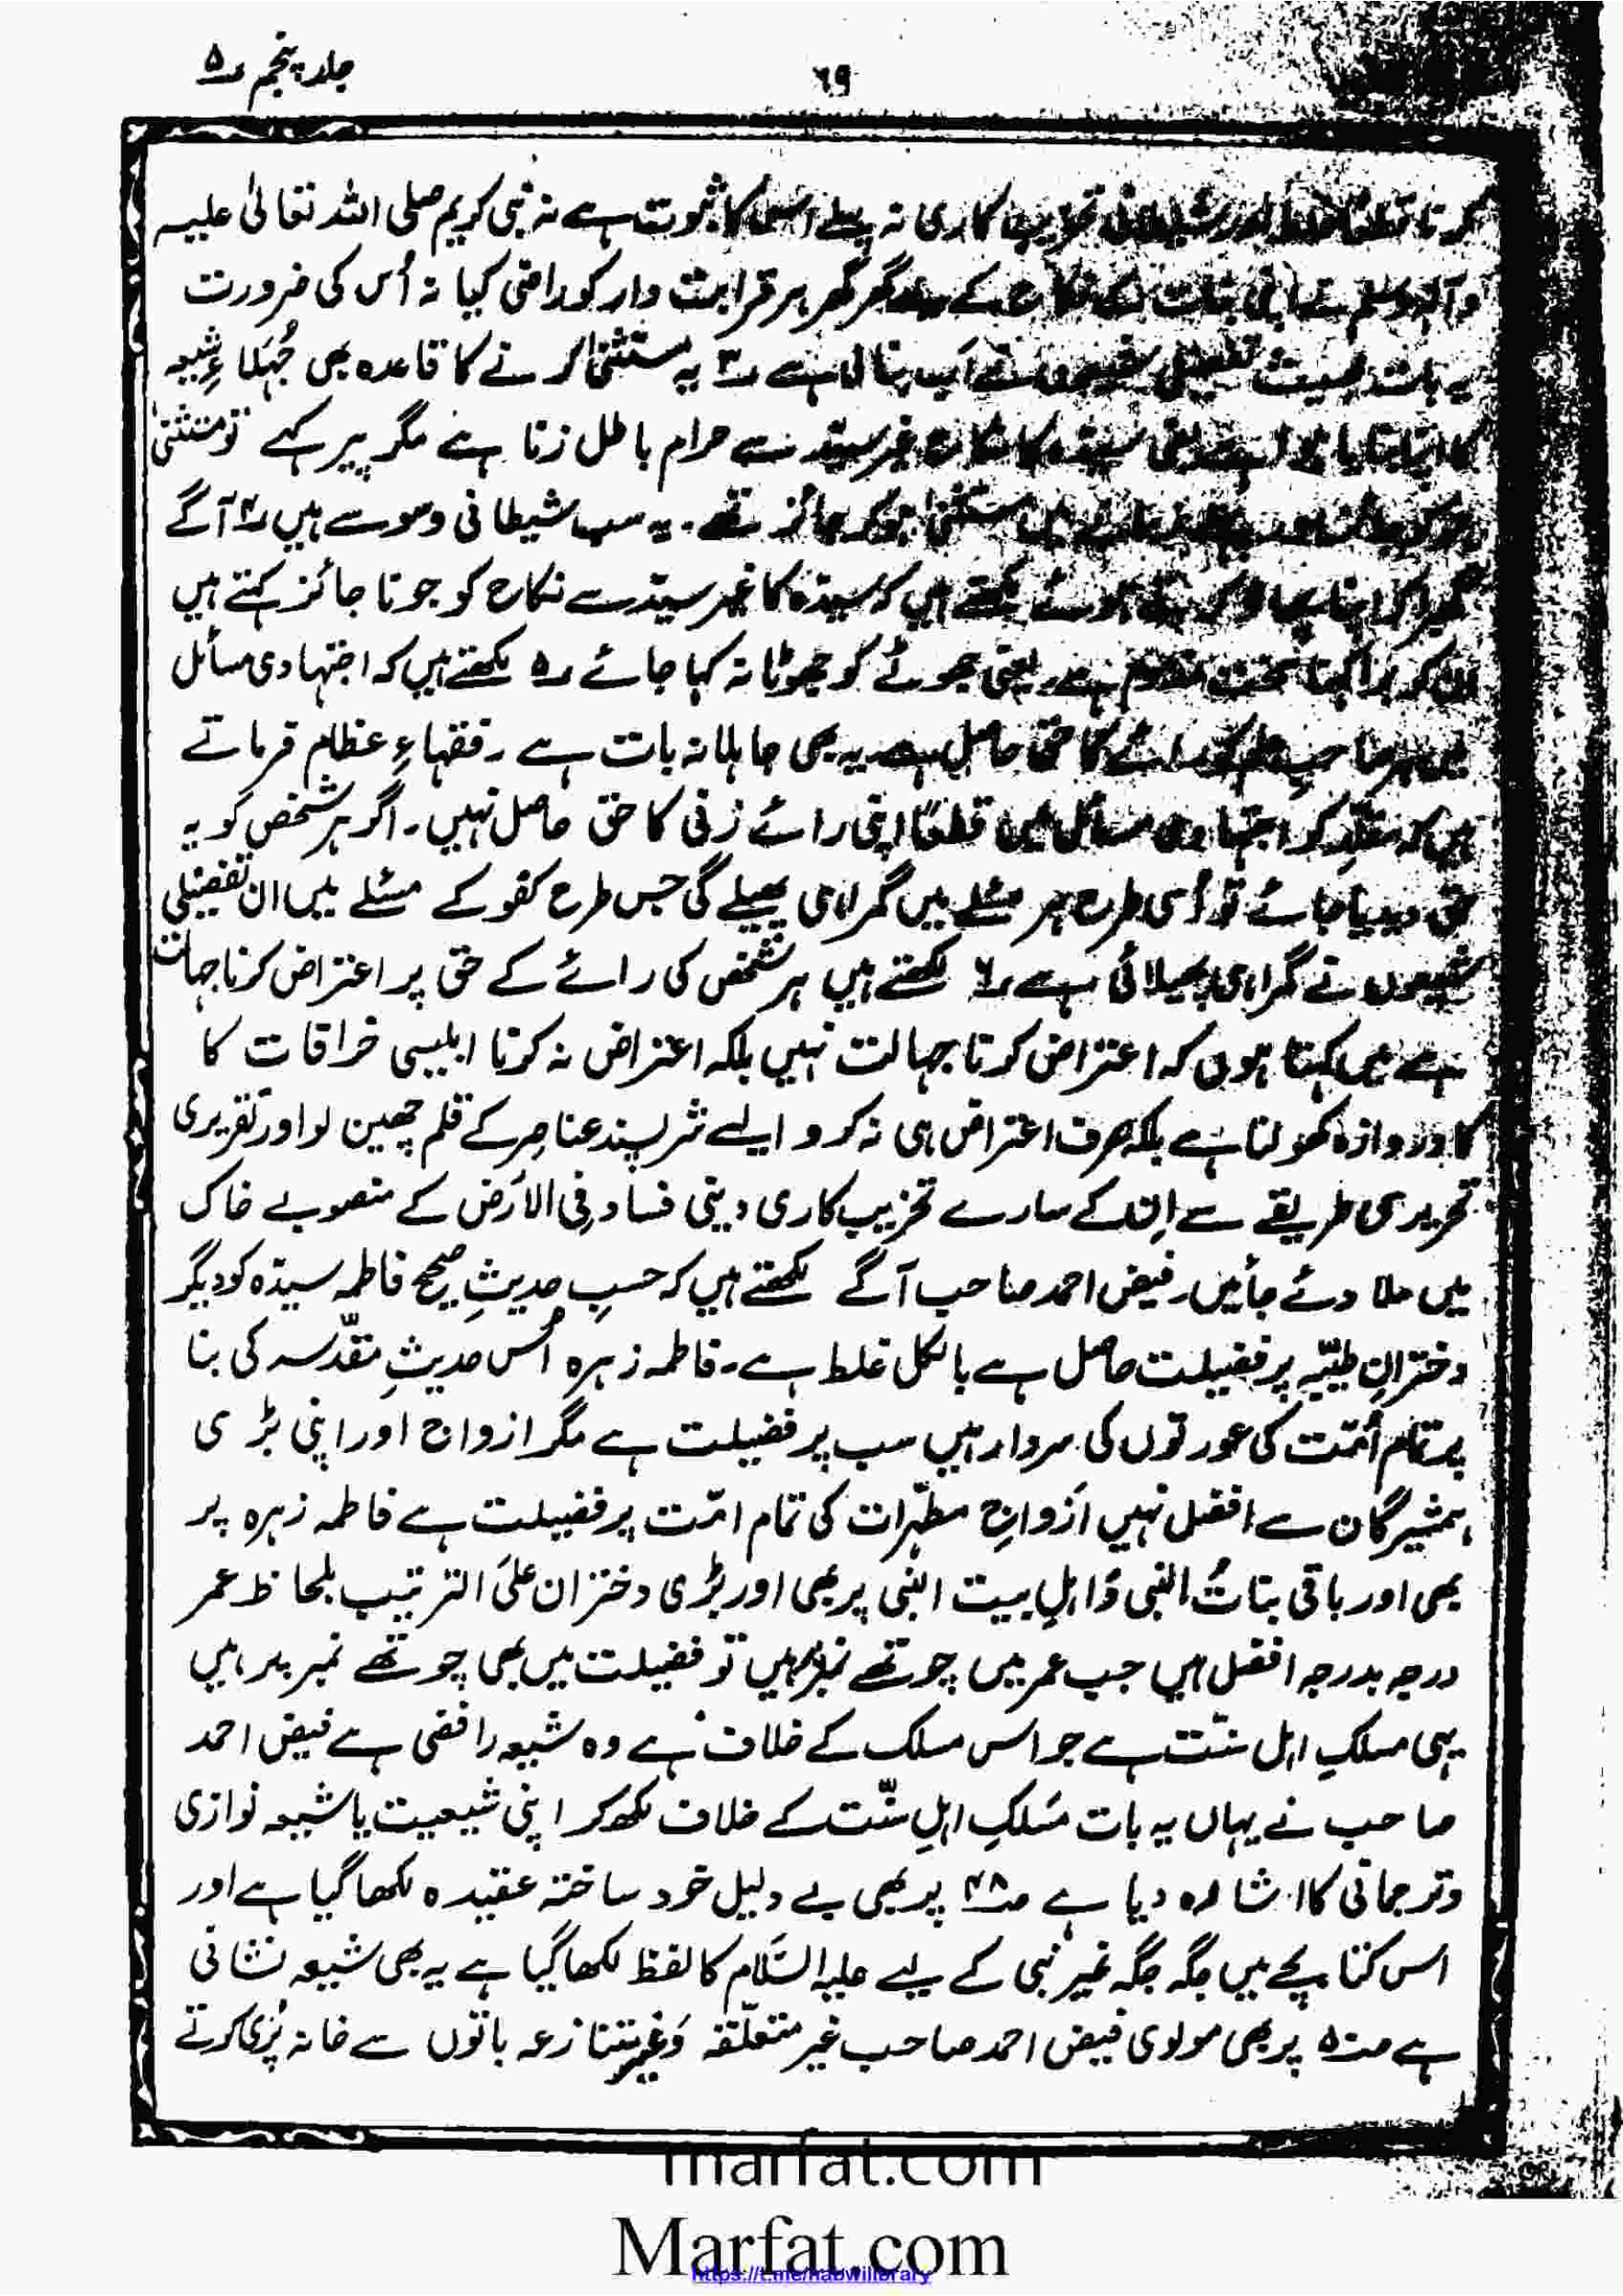 جلد پنجم ۵
۶۹
کاری نہ پہلے اس کا ثبوت ہے نہ نبی کریم صلی اللہ تعالیٰ علیہ
وآلہ وسلم نے اپنی بنات کے نکاح کے گھر گھر ہر قرابت دار کو راضی کیا نہ اُس کی ضرورت
یہ بات تفضیلی شیعوں نے آپ بنا لی ہے ۳ یہ مستثنیٰ کرنے کا قاعدہ بھی جُہَلاءِ شیعہ
کا اپنا بنایا ہوا ہے یعنی سیّدہ کا نکاح غیر سیّد سے حرام باطل زنا ہے مگر پیر کہے تو مستثنیٰ
مستثنیٰ ہو کر جائز تھے۔ یہ سب شیطانی وسوسے ہیں ۴ آگے
ہوئے لکھتے ہیں کہ سیّدہ کا غیر سیّد سے نکاح کو جو نا جائز کہتے ہیں
ان کو بُرا کہنا سخت مذموم ہے۔ یعنی جھوٹے کو جھوٹا نہ کہا جائے ۵ لکھتے ہیں کہ اجتہادی مسائل
میں ہر صاحبِ علم کو رائے کا حق حاصل ہے۔ یہ بھی جاہلانہ بات ہے ۔ فقہاءِ عظام فرماتے
ہیں کہ مقلد کو اجتہادی مسائل میں قطعًا اپنی رائے زنی کا حق حاصل نہیں۔ اگر ہر شخص کو یہ
حق دیدیا جائے تو اُسی طرح ہر مسئلے میں گمراہی پھیلے گی جس طرح کفو کے مسئلے میں ان تفضیلی
شیعوں نے گمراہی پھیلائی ہے ۶ لکھتے ہیں ہر شخص کی رائے کے حق پر اعتراض کرنا جہالت
ہے میں کہتا ہوں کہ اعتراض کرنا جہالت نہیں بلکہ اعتراض نہ کرنا ابلیسی خرافات کا
کا دروازہ کھولنا ہے بلکہ صرف اعتراض ہی نہ کرو ایسے شر پسند عناصر کے قلم چھین لو اور تقریری
تحریری طریقے سے اِن کے سارے تخریب کاری دینی فساد فِی الاَرض کے منصوبے خاک
میں ملا دئے جائیں۔ فیض احمد صاحب آگے لکھتے ہیں کہ حسبِ حدیثِ صحیح فاطمہ سیدّہ کو دیگر
دخترانِ طیّبہ پر فضیلت حاصل ہے بالکل غلط ہے۔ فاطمہ زہرہ اُس حدیثِ مقدّسہ کی بنا
پر تمام اُمّت کی عورتوں کی سردار ہیں سب پر فضیلت ہے مگر ازواج اور اپنی بڑی
ہمشیرگان سے افضل نہیں اَزواجِ مطہّرات کی تمام امّت پر فضیلت ہے فاطمہ زہرہ پر
بھی اور باقی بناتُ النبی وَ اہلِ بیت النبی پر بھی اور بڑی دختران علَی الترتیب بلحاظ عمر
درجہ بدرجہ افضل ہیں جب عمر میں چوتھے نمبر پر ہیں تو فضیلت میں بھی چوتھے نمبر پر ہیں
یہی مسلکِ اہل سنّت ہے جو اس مسلک کے خلاف ہے وہ شیعہ رافضی ہے فیض احمد
صاحب نے یہاں یہ بات مَسلکِ اہلِ سنّت کے خلاف لکھ کر اپنی شیعیت یا شیعہ نوازی
و ترجمانی کا اشارہ دیا ہے صـ۴۸ پر بھی بے دلیل خود ساختہ عقیدہ لکھا گیا ہے اور
اس کتابچے میں جگہ جگہ غیر نبی کے لیے علیہ السَّلام کا لفظ لکھا گیا ہے یہ بھی شیعہ نشانی
ہے صـ۵۰ پر بھی مولوی فیض احمد صاحب غیر متعلّقہ وَ غیر متنازعہ باتوں سے خانہ پُری کرتے
marfat.com
Marfat.com
https://t.me/nabwilibrary